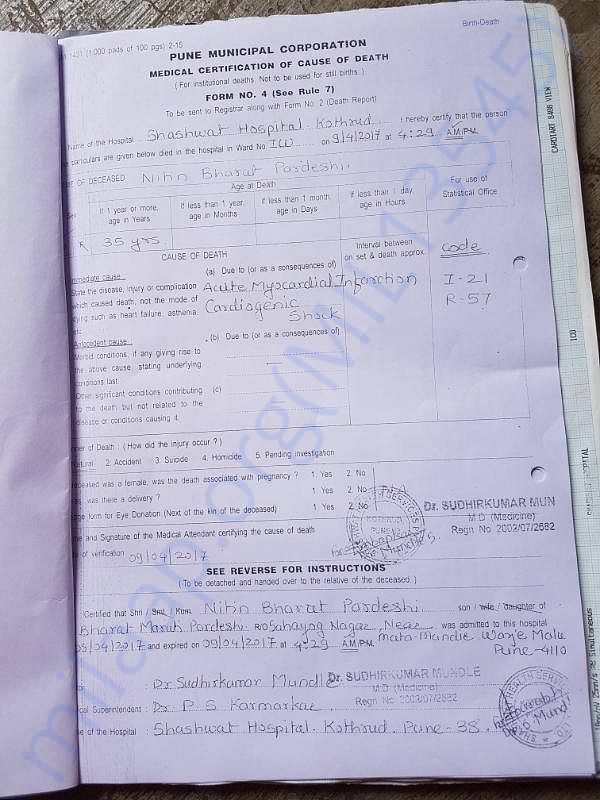 1431 (1,000 pads of 100 pgs) 2-15
Birth-Death
PUNE MUNICIPAL CORPORATION
MEDICAL CERTIFICATION OF CAUSE OF DEATH
(For institutional deaths. Not to be used for still births.)
FORM NO. 4 (See Rule 7)
To be sent to Registrar along with Form No. 2 (Death Report)
Name of the Hospital Shashwat Hospital. Kothrud. I hereby certify that the person
particulars are given below died in the hospital in Ward No. on 9/4/2017 at 4:29 A.M./P.M.
OF DECEASED Nitin Bharat Pardeshi.
Age at Death
For use of Statistical Office
If 1 year or more, age in Years
If less than 1 year age in Months
If less than 1 month, age in Days
If less than 1 day age in Hours
35 yrs.
CAUSE OF DEATH
Interval between on set & death approx.
code
Immediate cause
(a) Due to (or as a consequences of)
State the disease, injury or complication
which caused death, not the mode of
dying such as heart failure, asthenia,
etc.
Acute Myocardial Infarction
Cardiogenic Shock
I-21
R-57
Antecedent cause
(b) Due to (or as a consequences of)
Morbid conditions, if any giving rise to
the above cause, stating underlying
conditions last
Other significant conditions contributing (c)
to the death but not related to the
disease or conditions causing 4.
of Death : (How did the injury occur ?)
Natural 2. Accident 3. Suicide 4. Homicide 5. Pending investigation
deceased was a female, was the death associated with pregnancy ? 1. Yes 2. No
was there a delivery ? 1. Yes 2. No
form for Eye Donation (Next of the kin of the deceased) 1. Yes 2. No
and Signature of the Medical Attendant certifying the cause of death
of verification 09/04/2017
Dr. SUDHIRKUMAR MUN
M.D (Medicine)
Regn No 2003/07/2682
SEE REVERSE FOR INSTRUCTIONS
(To be detached and handed over to the relative of the deceased.)
Certified that Shri / Smt. / Kum. Nitin Bharat Pardeshi son / wife / daughter of
Bharat Maruti Pardeshi R/o Sahayog Nagar, Near was admitted to this hospital
/04/2017 and expired on 09/04/2017 at 4:29 A.M./P.M. Mata-Mandir Warje Malu
Pune-4110
: Dr. Sudhirkumar Mundle
Dr. SUDHIRKUMAR MUNDLE
M.D (Medicine)
Regn No 2003/07/2682
Superintendent : Dr. P. S. Karmarkar
of the Hospital : Shashwat Hospital. Kothrud, Pune-38.
CARDIART 8408 VIEW
milaap.org(MIL135457)